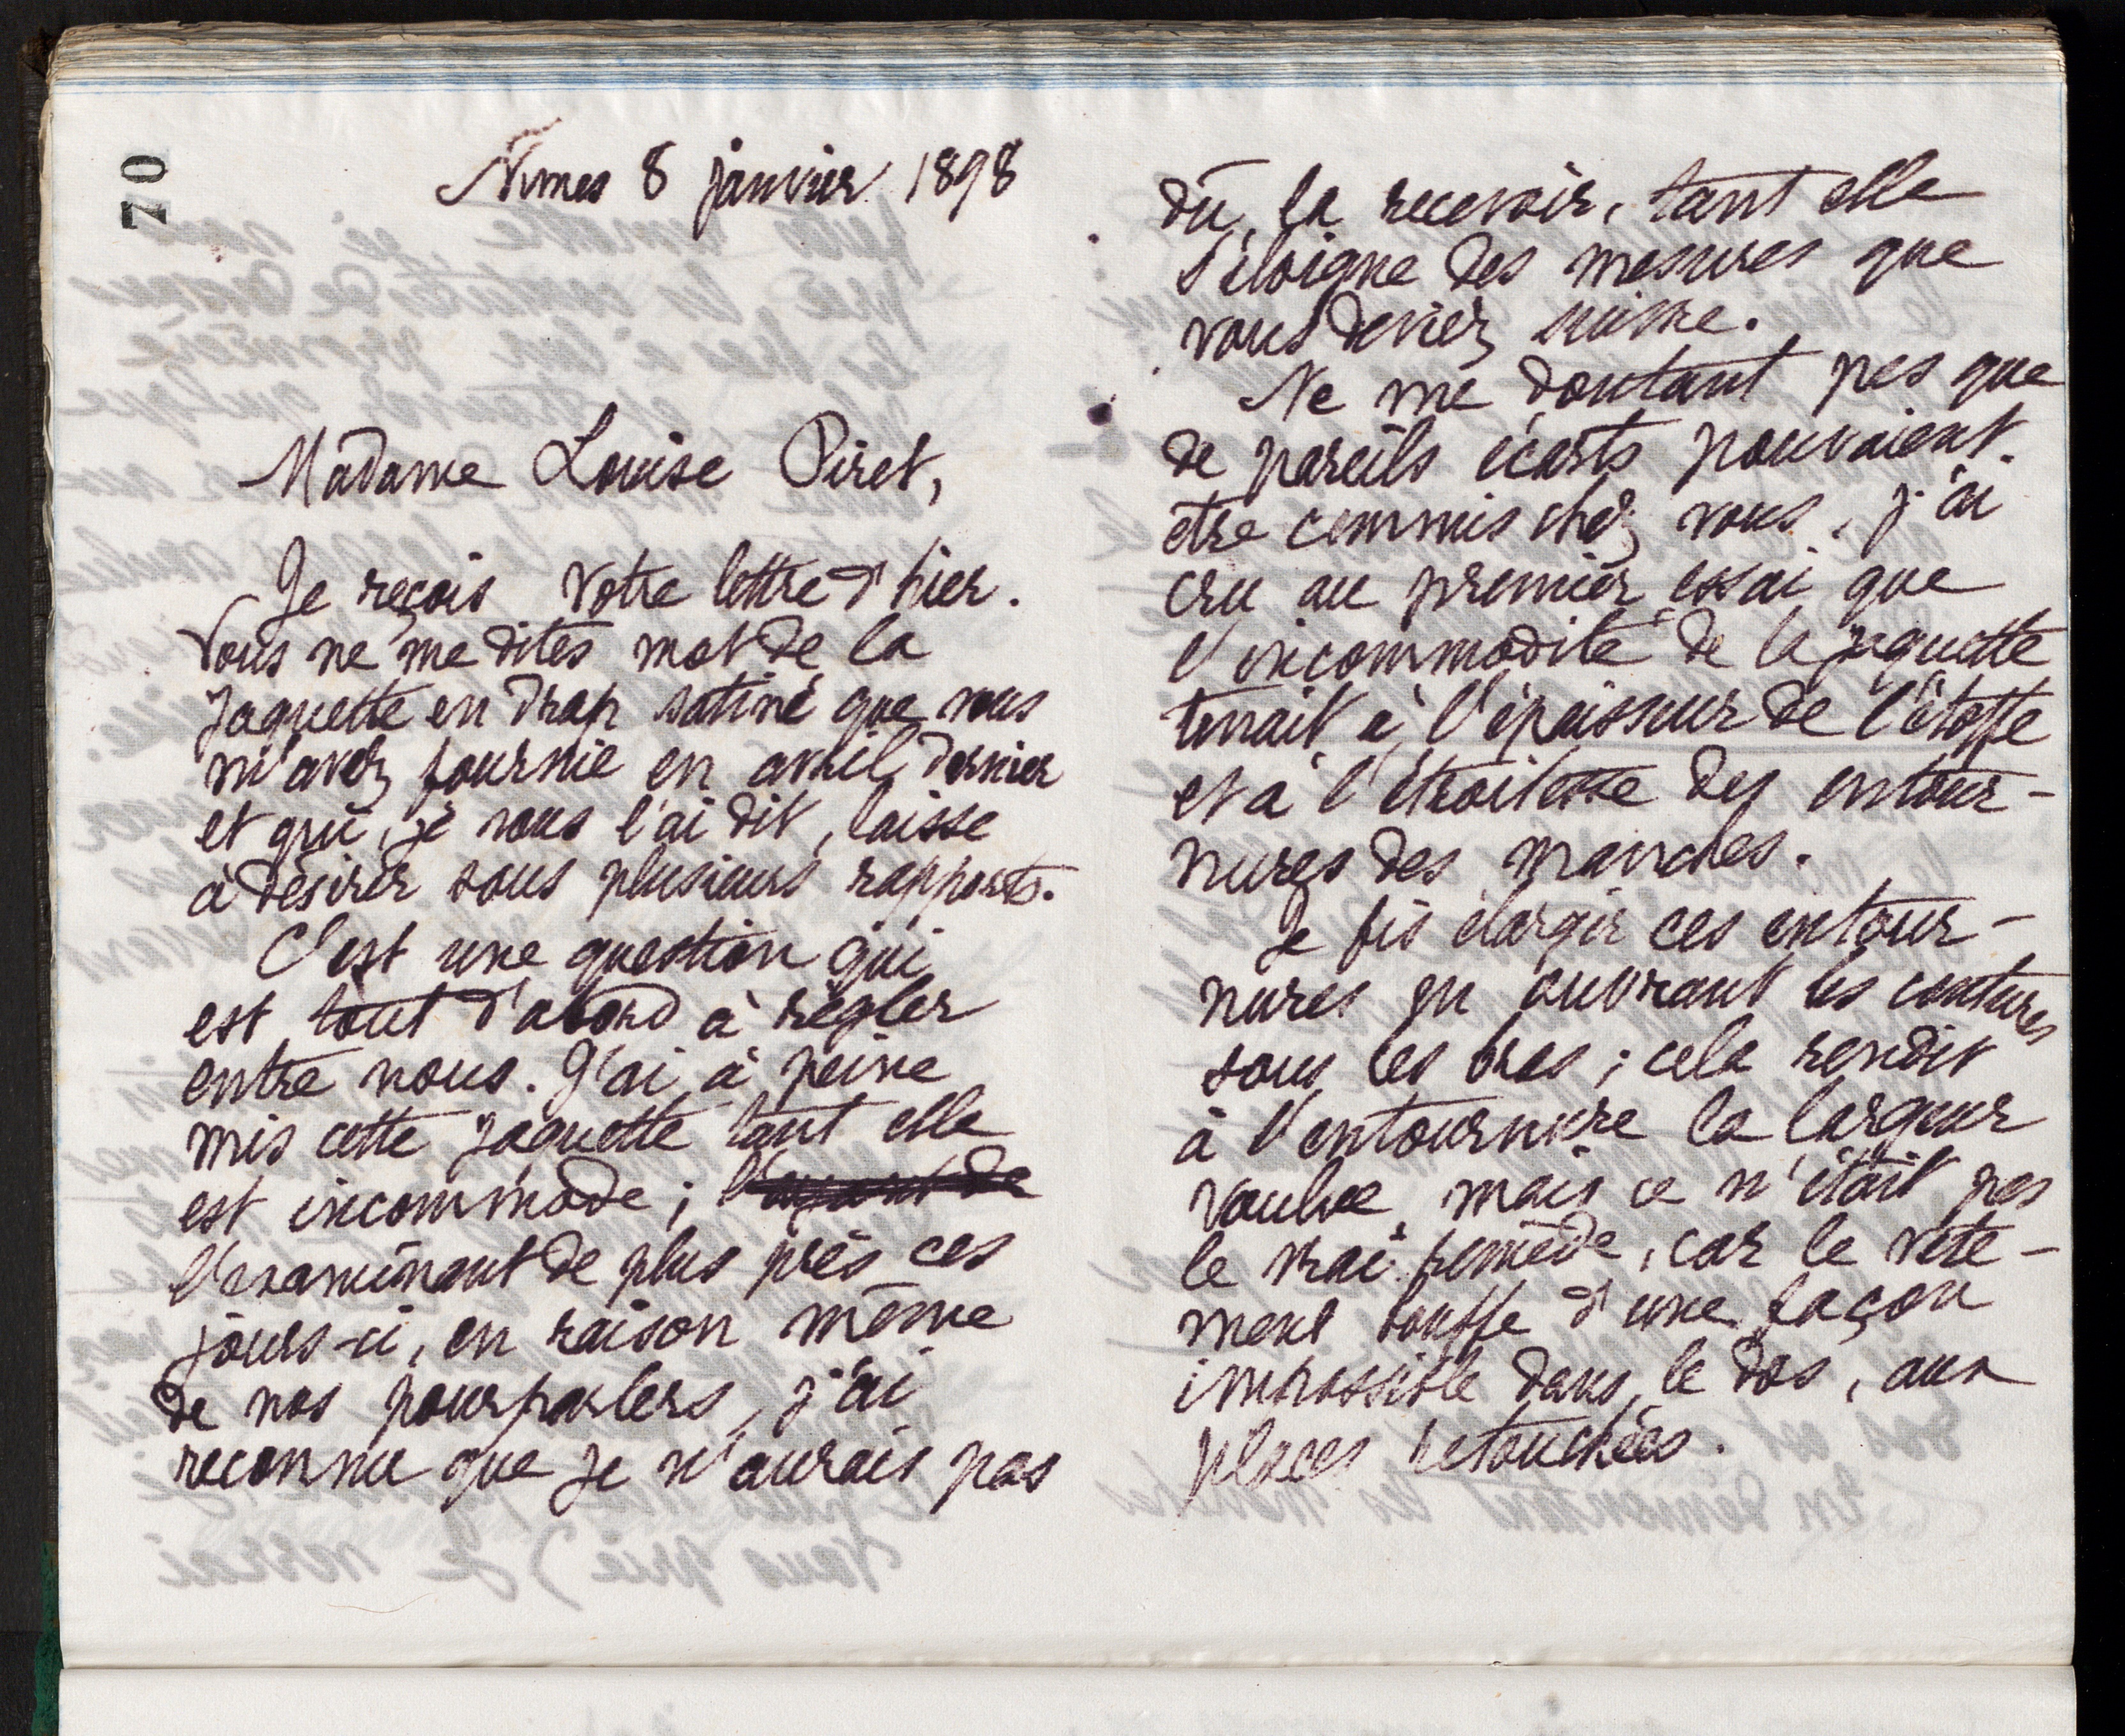 70
Nimes 8 janvier 1898
Madame Louise Piret,
Je reçois votre lettre d'hier.
Vous ne me dites mot de la
jaquette en drap satiné que vous
m'avez fournie en avril dernier
et qui, je vous l'ai dit, laisse
à désirer sous plusieurs rapports.
C'est une question qui
est tout d'abord à régler
entre nous. J'ai à peine
mis cette jaquette tant elle
est incommode; l'ayant de
l'examinant de plus près ces
jours-ci, en raison même
de nos pourparlers, j'ai
reconnu que je n'aurais pas
dû la recevoir, tant elle
s'éloigne des mesures que
vous deviez suivre.
Ne me doutant pas que
de pareils écarts pouvaient
être commis chez vous, j'ai
cru au premier essai que
l'incommodité de la jaquette
tenait à l'épaisseur de l'étoffe
et à l'étroitesse des entour-
nures des manches.
Je fis élargir ces entour-
nures en ouvrant les coutures
sous les bras; cela rendit
à l'entournure la largeur
voulue, mais ce n'était pas
le vrai remède, car le vête-
ment bouffe d'une façon
impossible dans le dos, aux
places retouchées.